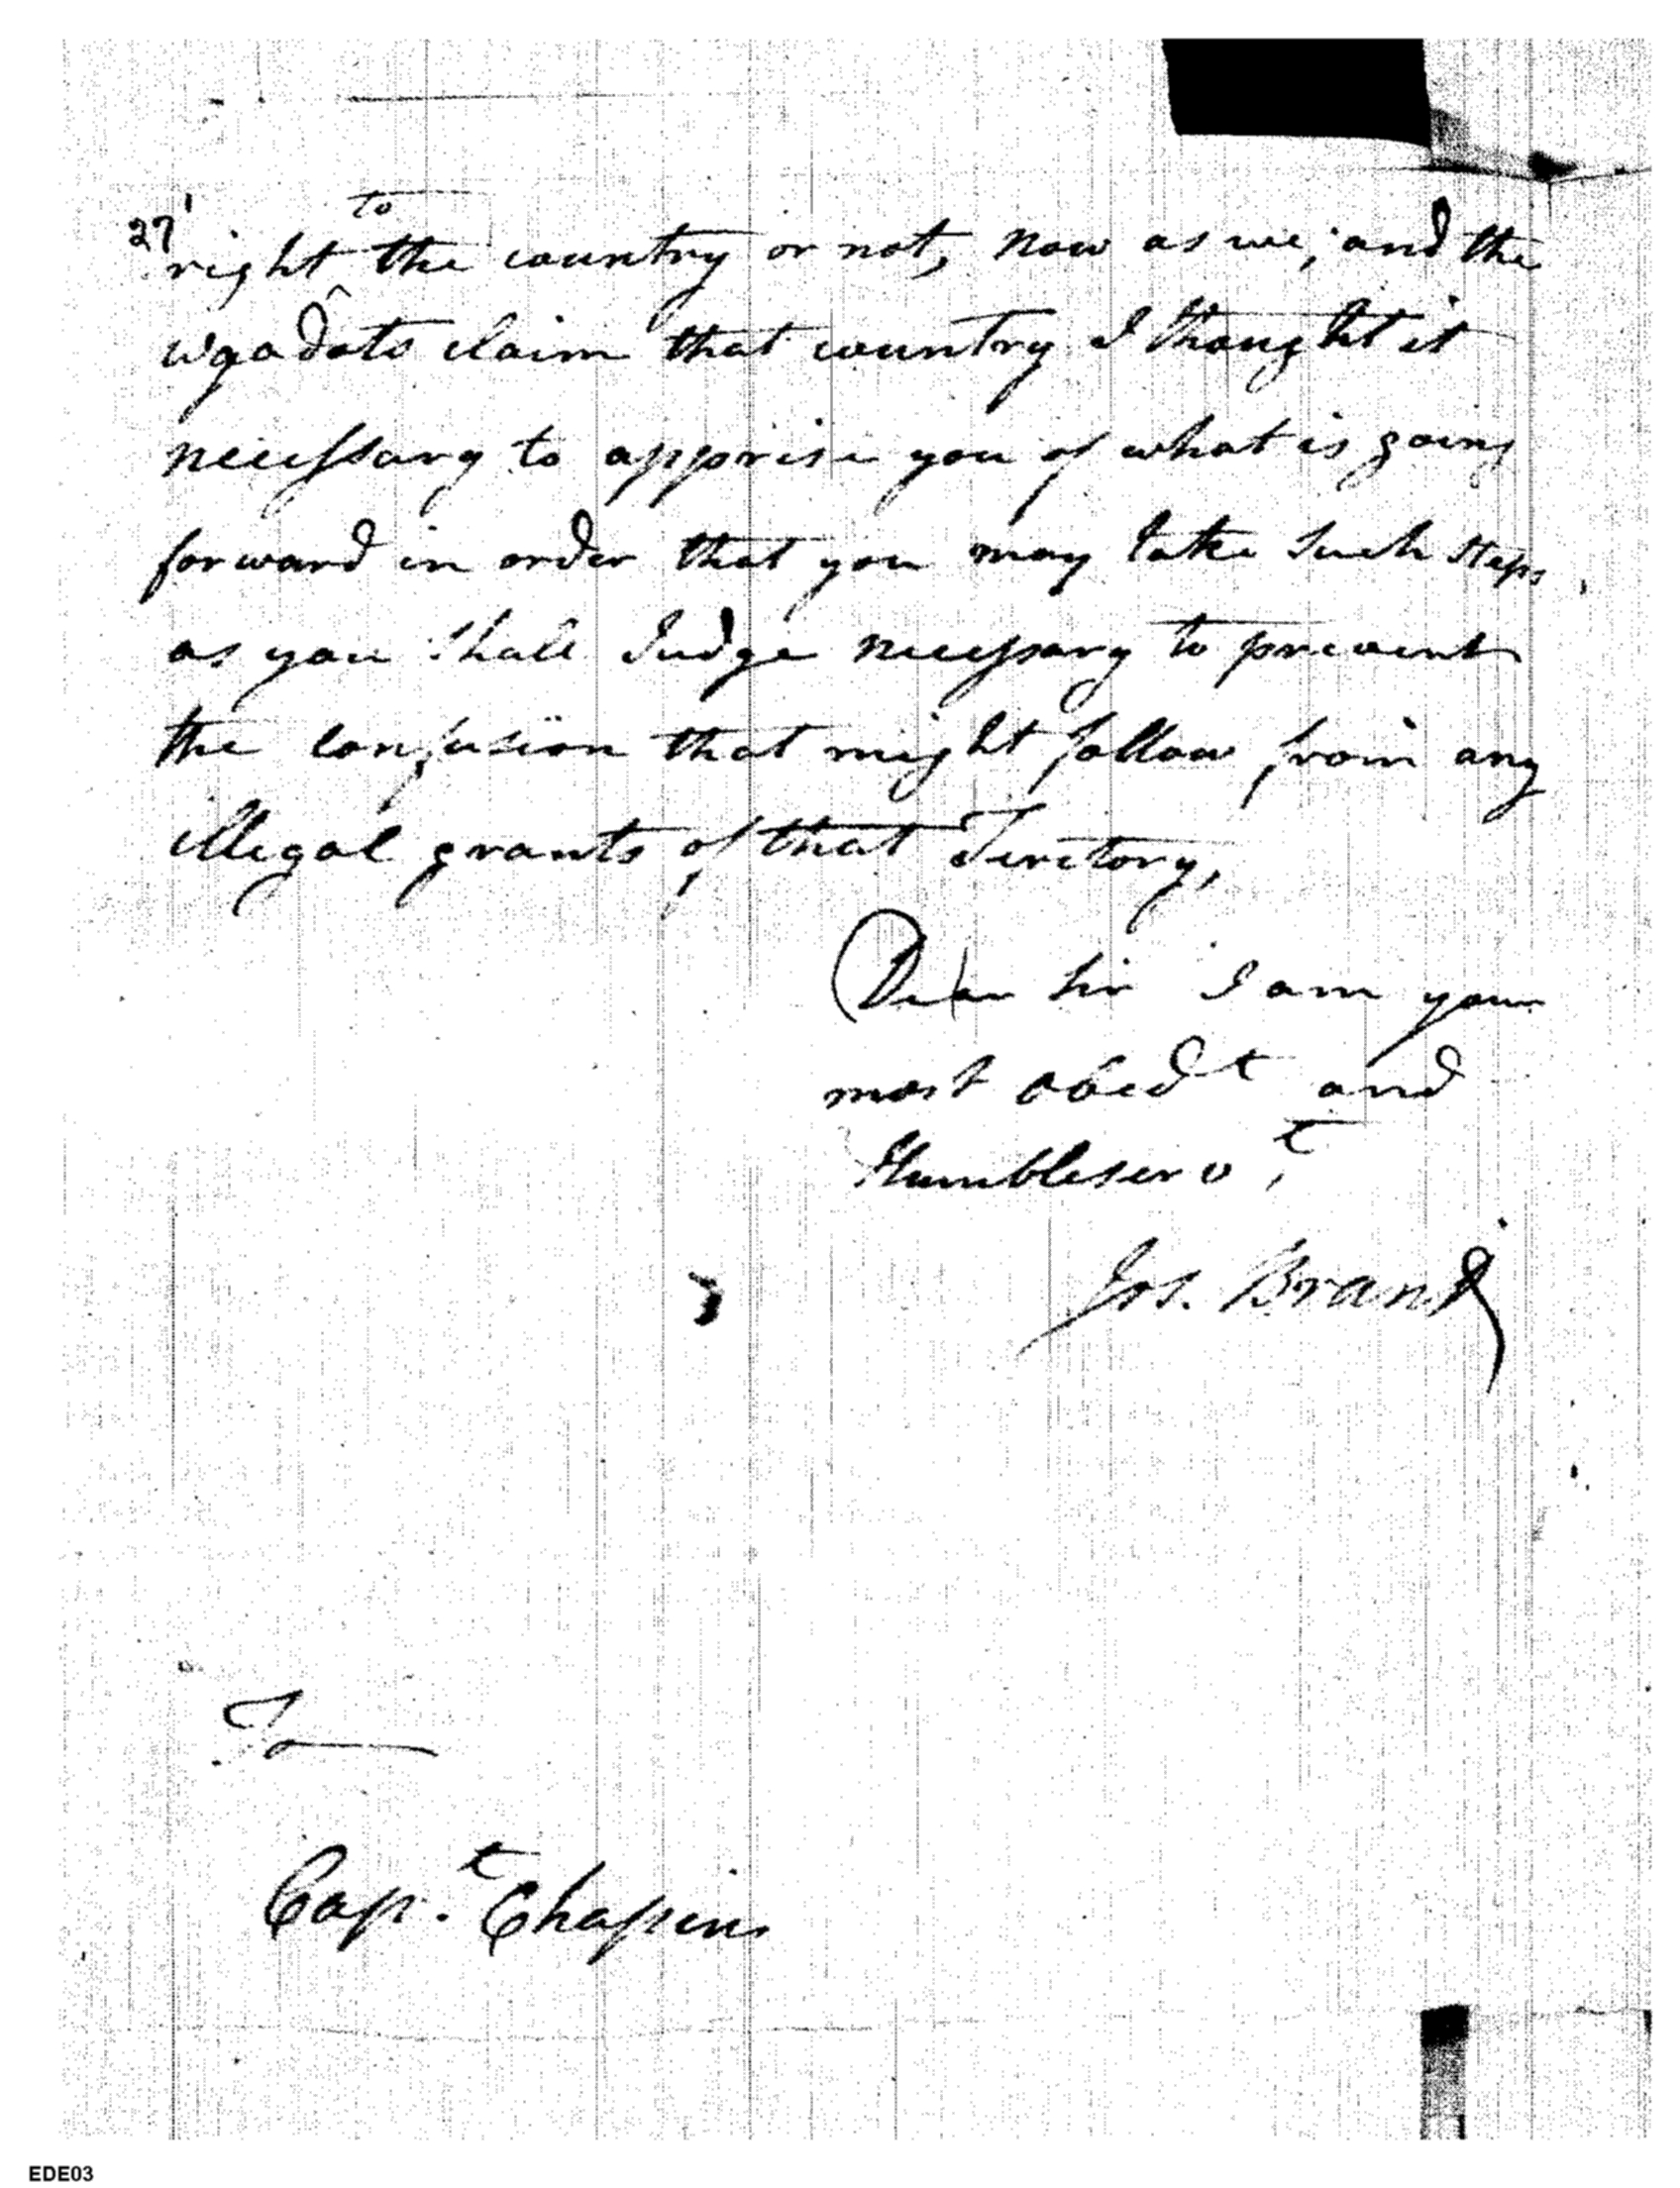 27
to
right the country or not, Now as we, and the
wyadots claim that country I thought it
necessary to apprise you of what is going
forward in order that you may take Such Steps
as you Shall Judge necessary to prevent
the confusion that might follow from any
illegal grants of that Teretory,
Dear Sir I am your
most obedt and
Humble servt,
Jos. Brant
To
Capt. Chapin
EDE03